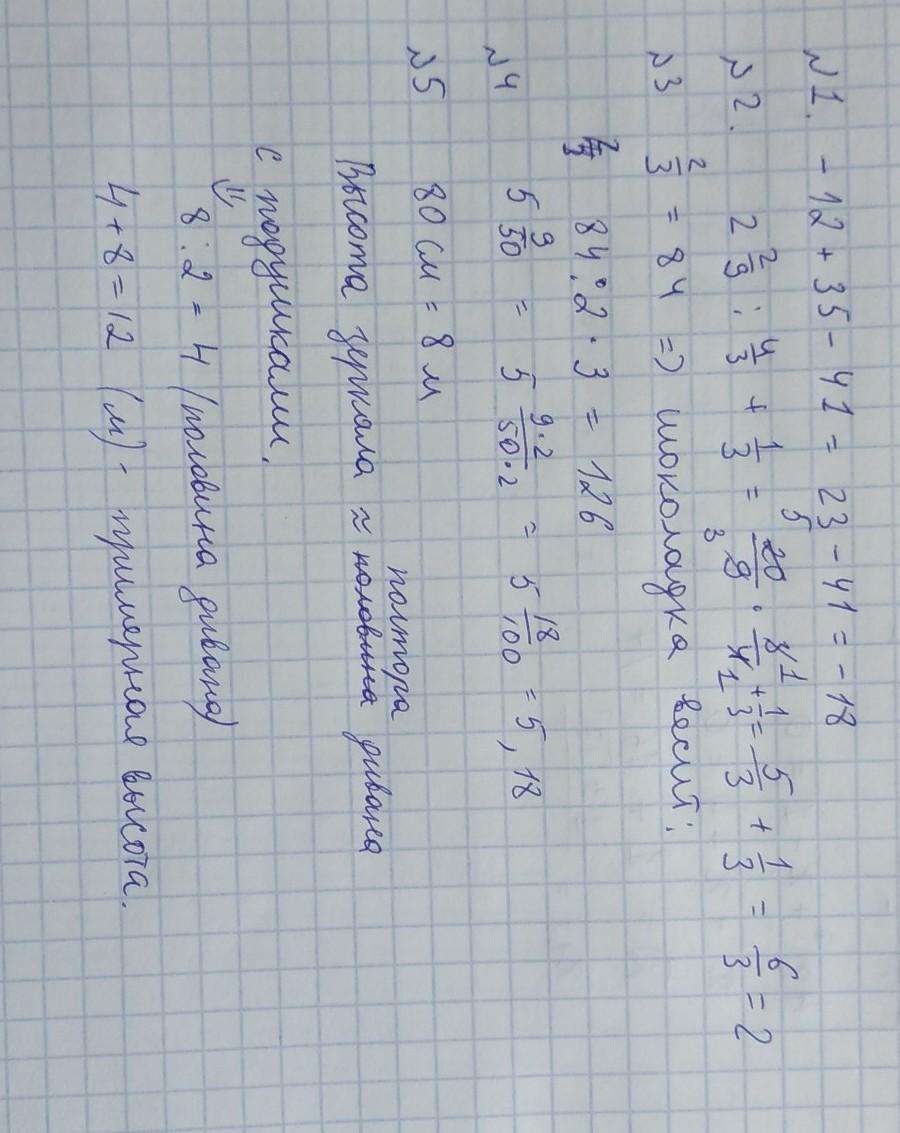 №1. - 12 + 35 - 41 = 23 - 41 = - 18
№2. 2 2/9 : 4/3 + 1/3 = 20/9 · 3/4 + 1/3 = 5/3 + 1/3 = 6/3 = 2
№3 2/3 = 84 => шоколадка весит:
84 : 2 · 3 = 126
№4 5 9/50 = 5 9·2/50·2 = 5 18/100 = 5,18
№5 80 см = 8 м
Высота зеркала ≈ полтора дивана
с подушками.
⇓
8 : 2 = 4 (половина дивана)
4 + 8 = 12 (м) - примерная высота.